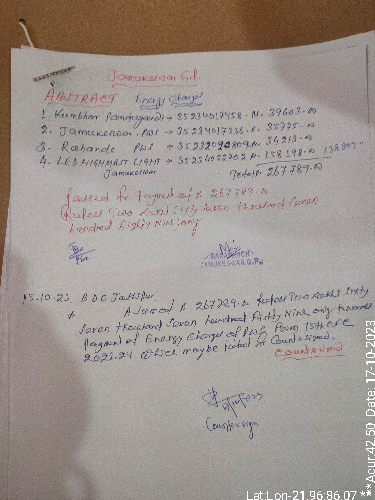 Jamukeswar G.P.
ABSTRACT Energy Charges
1. Kumbhar Pandiapandi → 35234017458 - ₨. 39603.00
2. Jamukeswar PWS → 35234017336 - ₨. 35775.00
3. Rashando PWS → 35232092809 - ₨. 34213.00
4. LED HIGHMAST LIGHT → 35234022702 - ₨ 158198.00
Jamukeswar Total = 267789.00
Passed for payment of ₨ 267789.00
Rupees Two Lakhs Sixty Seven thousand Seven
hundred Eighty Nine only
SARAPANCH
JAMUKESWAR G.P.
15.10.23. B D O
Advanced ₨ 267789.00 Rupees Two Lakhs Sixty
Seven thousand Seven hundred Eighty Nine only towards
Payment of Energy Charges of PWS from 15th CFC
2023-24 which may be for Countersigned.
Countersigned
Countersign
Lat:Lon-21.96:86.07 ***Acur:42.50 Date:17-10-2023